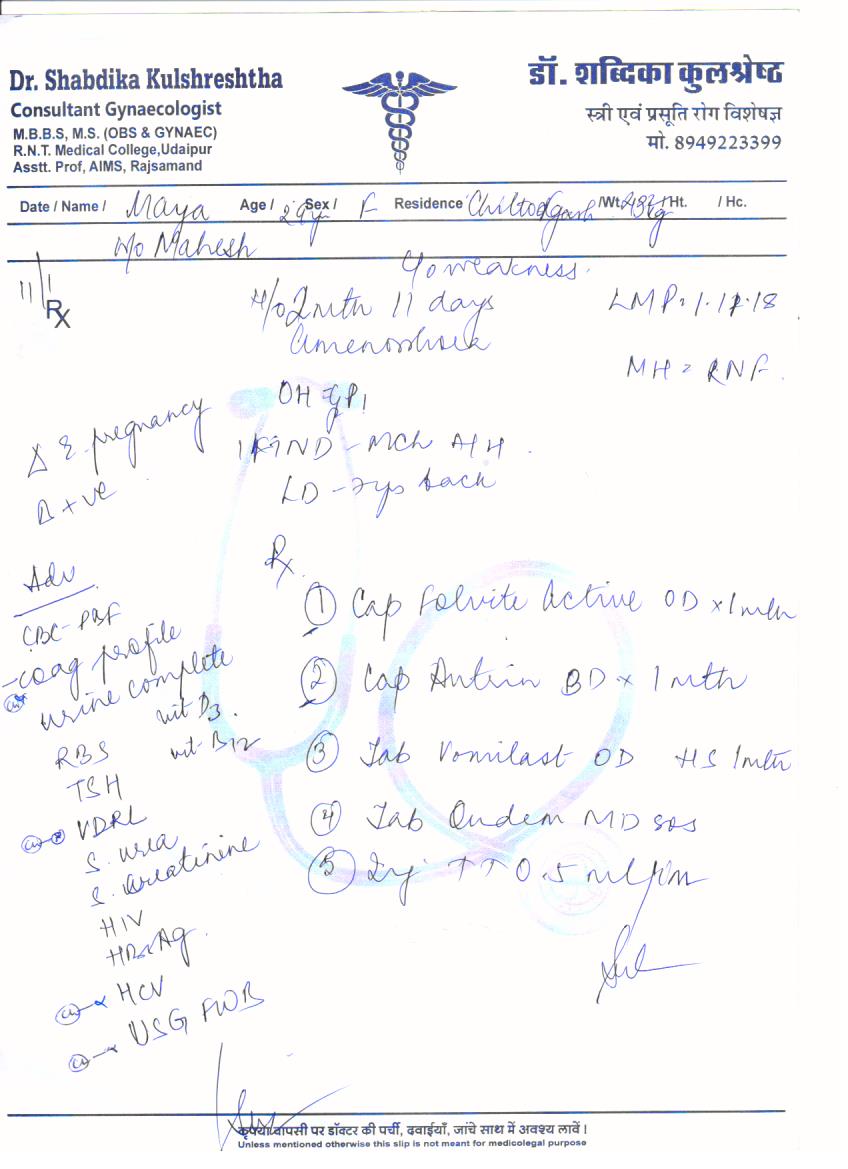 Dr. Shabdika Kulshreshtha
Consultant Gynaecologist
M.B.B.S, M.S. (OBS & GYNAEC)
R.N.T. Medical College,Udaipur
Asstt. Prof, AIMS, Rajsamand
डॉ. शब्दिका कुलश्रेष्ठ
स्त्री एवं प्रसूति रोग विशेषज्ञ
मो. 8949223399
Date / Name / Maya Age / Sex / F Residence Chittodgarh /Wt. /Ht. / Hc.
w/o Mahesh
c/o weakness.
11/1
Rx
H/o 2 mth 11 days
Amenorrhoea
LMP = 1.11.18
MH = RNF
OH
Δ pregnancy
B +ve
1 FTND - Mch A/H
LD - 2 yrs back
Adv
CBC - PBF
- coag profile
urine complete
vit D3.
RBS
vit B12
TSH
VDRL
S. urea
S. creatinine
HIV
HBsAg
HCV
USG FWB
Rx
1 Cap Folvite Active OD x 1 mth
2 Cap BD x 1 mth
3 Tab Vomilast OD HS 1 mth
4 Tab Ondem MD SOS
5 Inj TT 0.5 ml I/m
कृपया वापसी पर डॉक्टर की पर्ची, दवाईयाँ, जांचे साथ में अवश्य लावें !
Unless mentioned otherwise this slip is not meant for medicolegal purpose